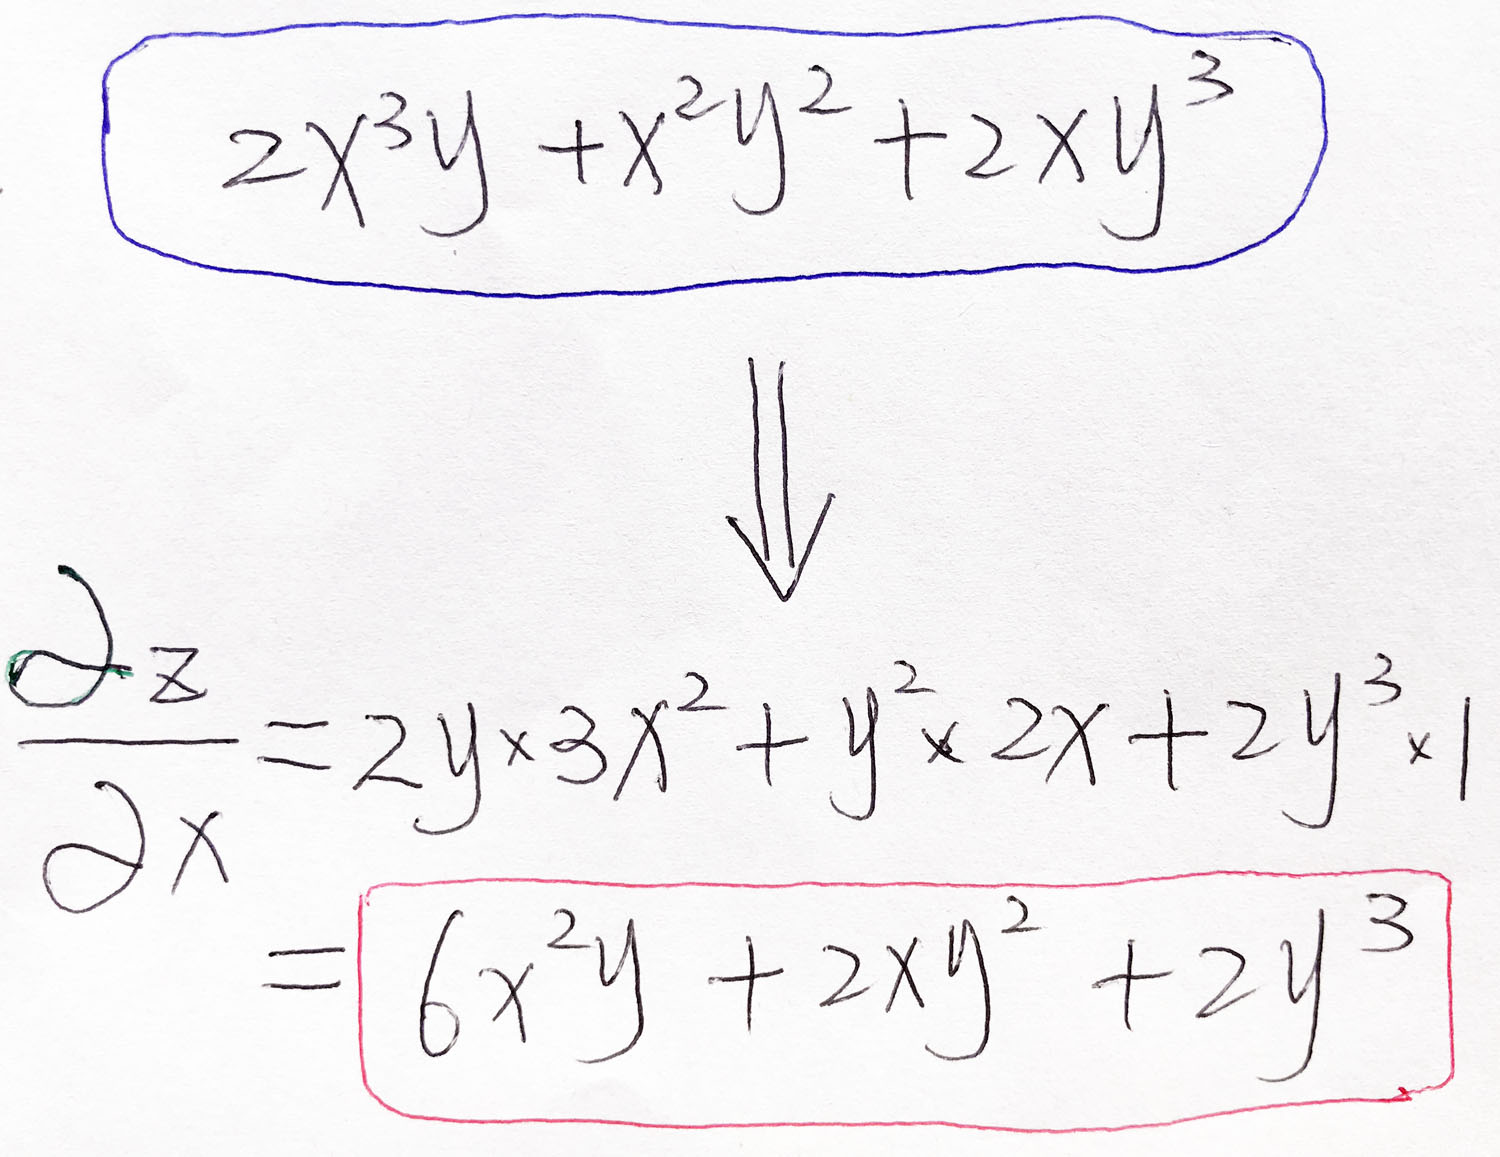 2x³y + x²y² + 2xy³
⇓
∂z/∂x = 2y × 3x² + y² × 2x + 2y³ × 1
= 6x²y + 2xy² + 2y³